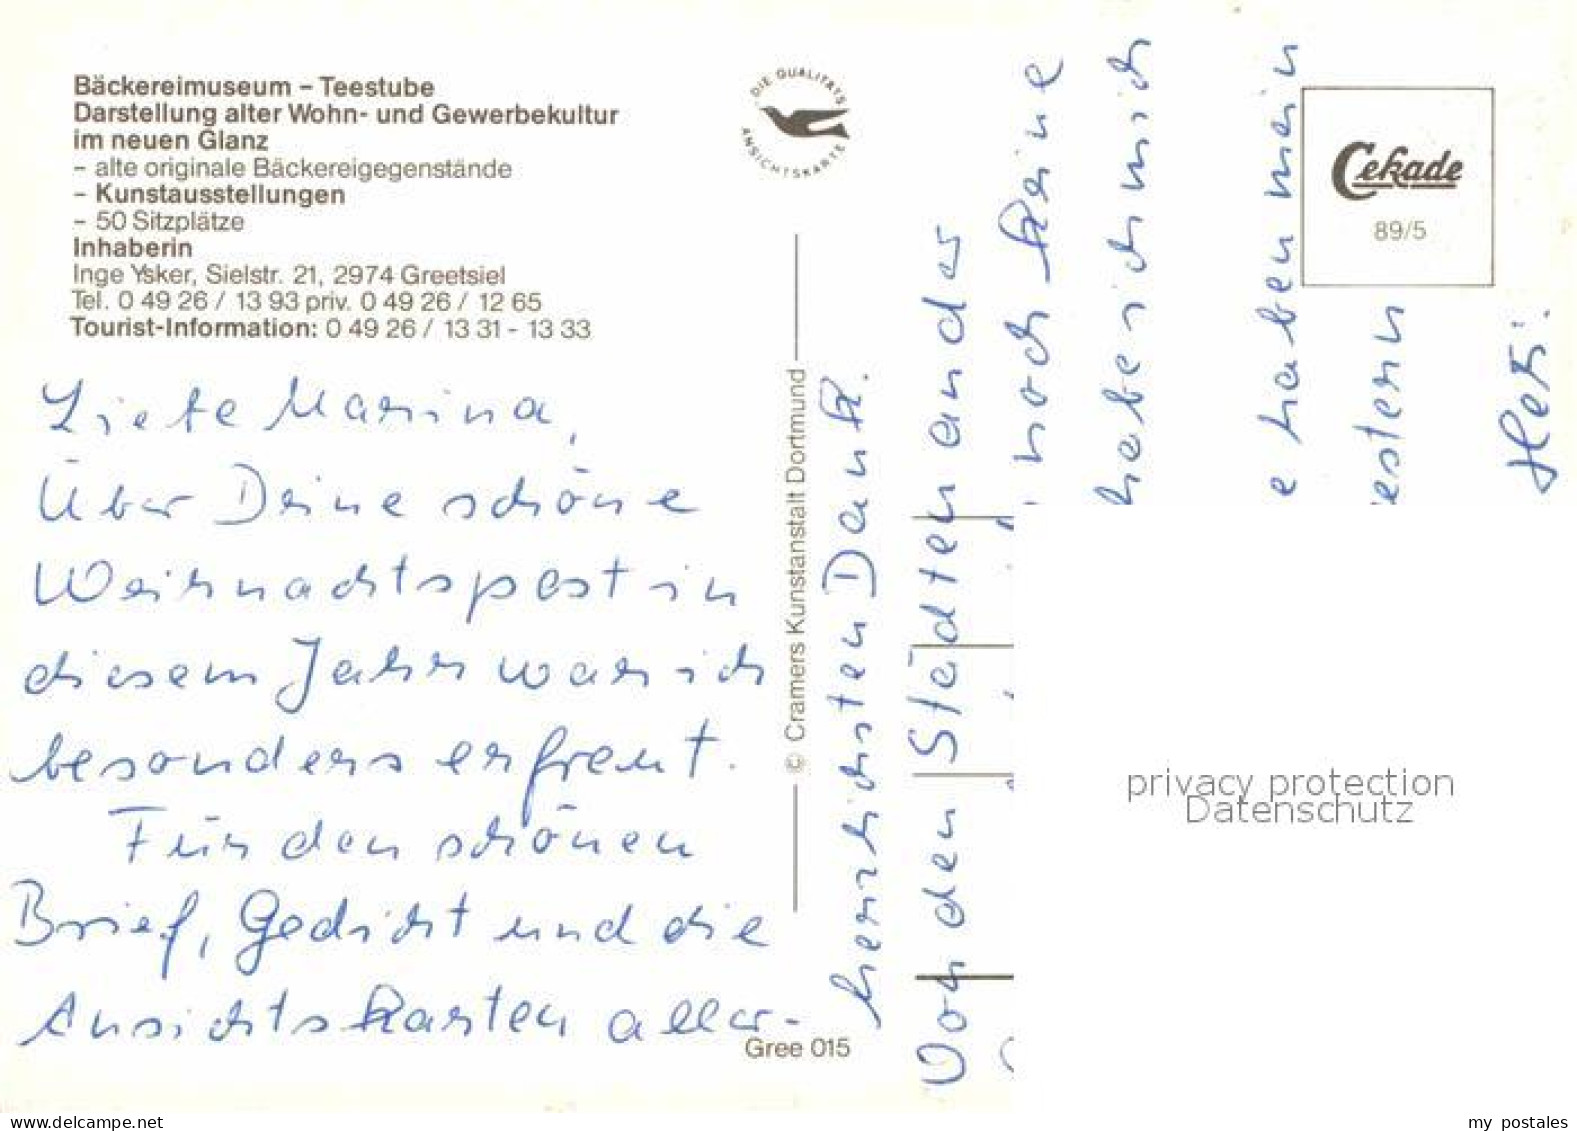 Bäckereimuseum – Teestube
Darstellung alter Wohn- und Gewerbekultur
im neuen Glanz
– alte originale Bäckereigegenstände
– Kunstausstellungen
– 50 Sitzplätze
Inhaberin
Inge Ysker, Sielstr. 21, 2974 Greetsiel
Tel. 0 49 26 / 13 93 priv. 0 49 26 / 12 65
Tourist-Information: 0 49 26 / 13 31 - 13 33
DIE QUALITÄTS ANSICHTSKARTE
Cekade
89/5
Liebe Marina,
Über Deine schöne
Weihnachtspost in
diesem Jahr war ich
besonders erfreut.
Für den schönen
Brief, Gedicht und die
Ansichtskarten aller-
herzlichsten Dank.
Von den Städten an der
noch keine
habe ich mich
e haben mein
estern
© Cramers Kunstanstalt Dortmund
Gree 015
privacy protection
Datenschutz
my postales
www.delcampe.net